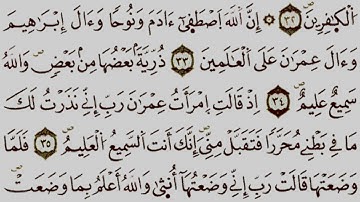 ٱلْكَٰفِرِينَ ٣٢ ۞ إِنَّ ٱللَّهَ ٱصْطَفَىٰٓ ءَادَمَ وَنُوحًا وَءَالَ إِبْرَٰهِيمَ
وَءَالَ عِمْرَٰنَ عَلَى ٱلْعَٰلَمِينَ ٣٣ ذُرِّيَّةَۢ بَعْضُهَا مِنۢ بَعْضٍ وَٱللَّهُ
سَمِيعٌ عَلِيمٌ ٣٤ إِذْ قَالَتِ ٱمْرَأَتُ عِمْرَٰنَ رَبِّ إِنِّى نَذَرْتُ لَكَ
مَا فِى بَطْنِى مُحَرَّرًا فَتَقَبَّلْ مِنِّىٓ إِنَّكَ أَنتَ ٱلسَّمِيعُ ٱلْعَلِيمُ ٣٥ فَلَمَّا
وَضَعَتْهَا قَالَتْ رَبِّ إِنِّى وَضَعْتُهَآ أُنثَىٰ وَٱللَّهُ أَعْلَمُ بِمَا وَضَعَتْ